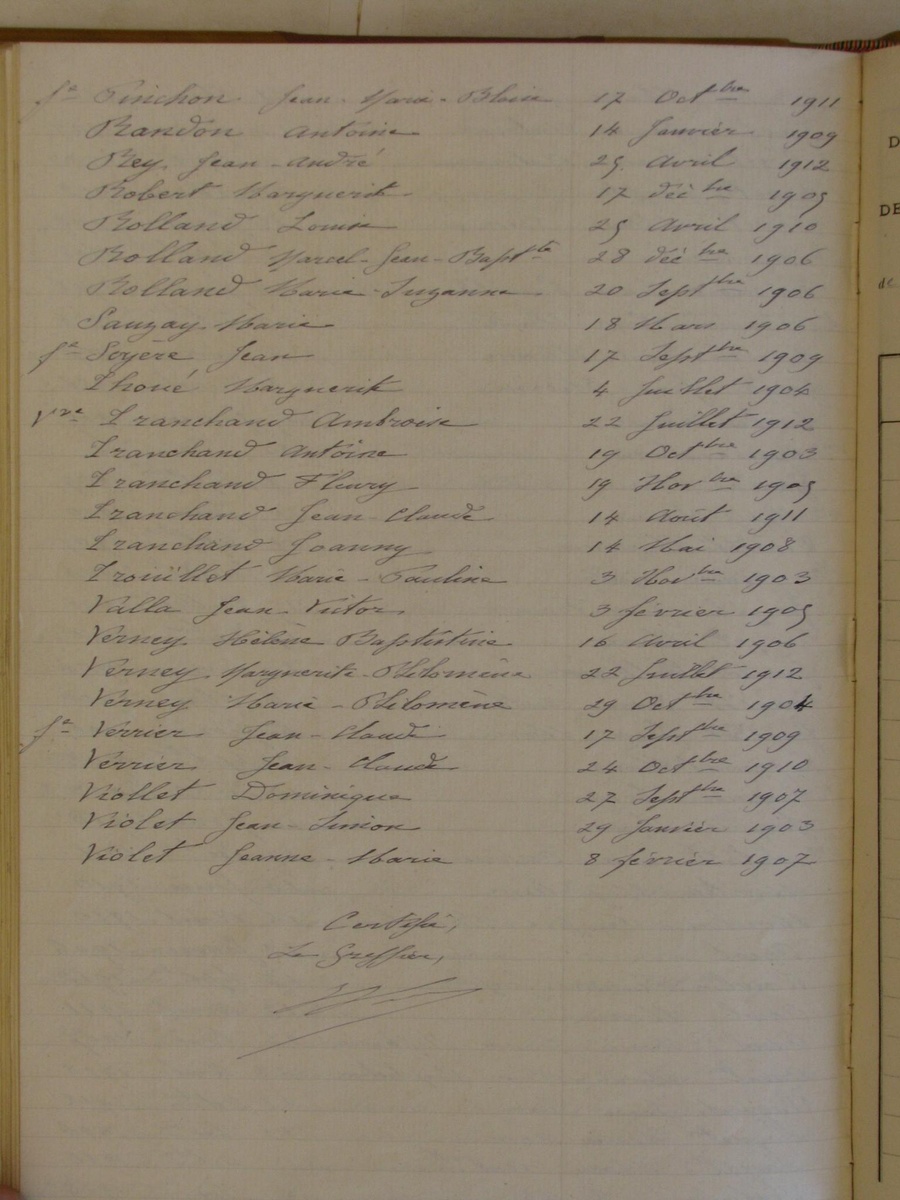 fe Pinchon Jean-Marie-Blaise 17 Octbre 1911
Randon Antoine 14 Janvier 1909
Rey Jean-André 25 Avril 1912
Robert Marguerite 17 décbre 1905
Rolland Louise 25 Avril 1910
Rolland Marcel-Jean-Baptte 28 décbre 1906
Rolland Marie-Suzanne 20 Septbre 1906
Sauzay Marie 18 Mars 1906
fe Soyère Jean 17 Septbre 1909
Thoué Marguerite 4 Juillet 1904
Vve Tranchand Ambroise 22 Juillet 1912
Tranchand Antoine 19 Octbre 1903
Tranchand Fleury 19 Novbre 1905
Tranchand Jean-Claude 14 Août 1911
Tranchand Joanny 14 Mai 1908
Trouillet Marie-Pauline 3 Novbre 1903
Valla Jean-Victor 3 février 1905
Verney Hélène Baptistine 16 Avril 1906
Verney Marguerite-Philomène 22 Juillet 1912
Verney Marie-Philomène 29 Octbre 1904
fe Verrier Jean-Claude 17 Septbre 1909
Verrier Jean-Claude 24 Octbre 1910
Viollet Dominique 27 Septbre 1907
Violet Jean-Simon 29 Janvier 1903
Violet Jeanne-Marie 8 février 1907
Certifié,
Le Greffier,
D
DE
de